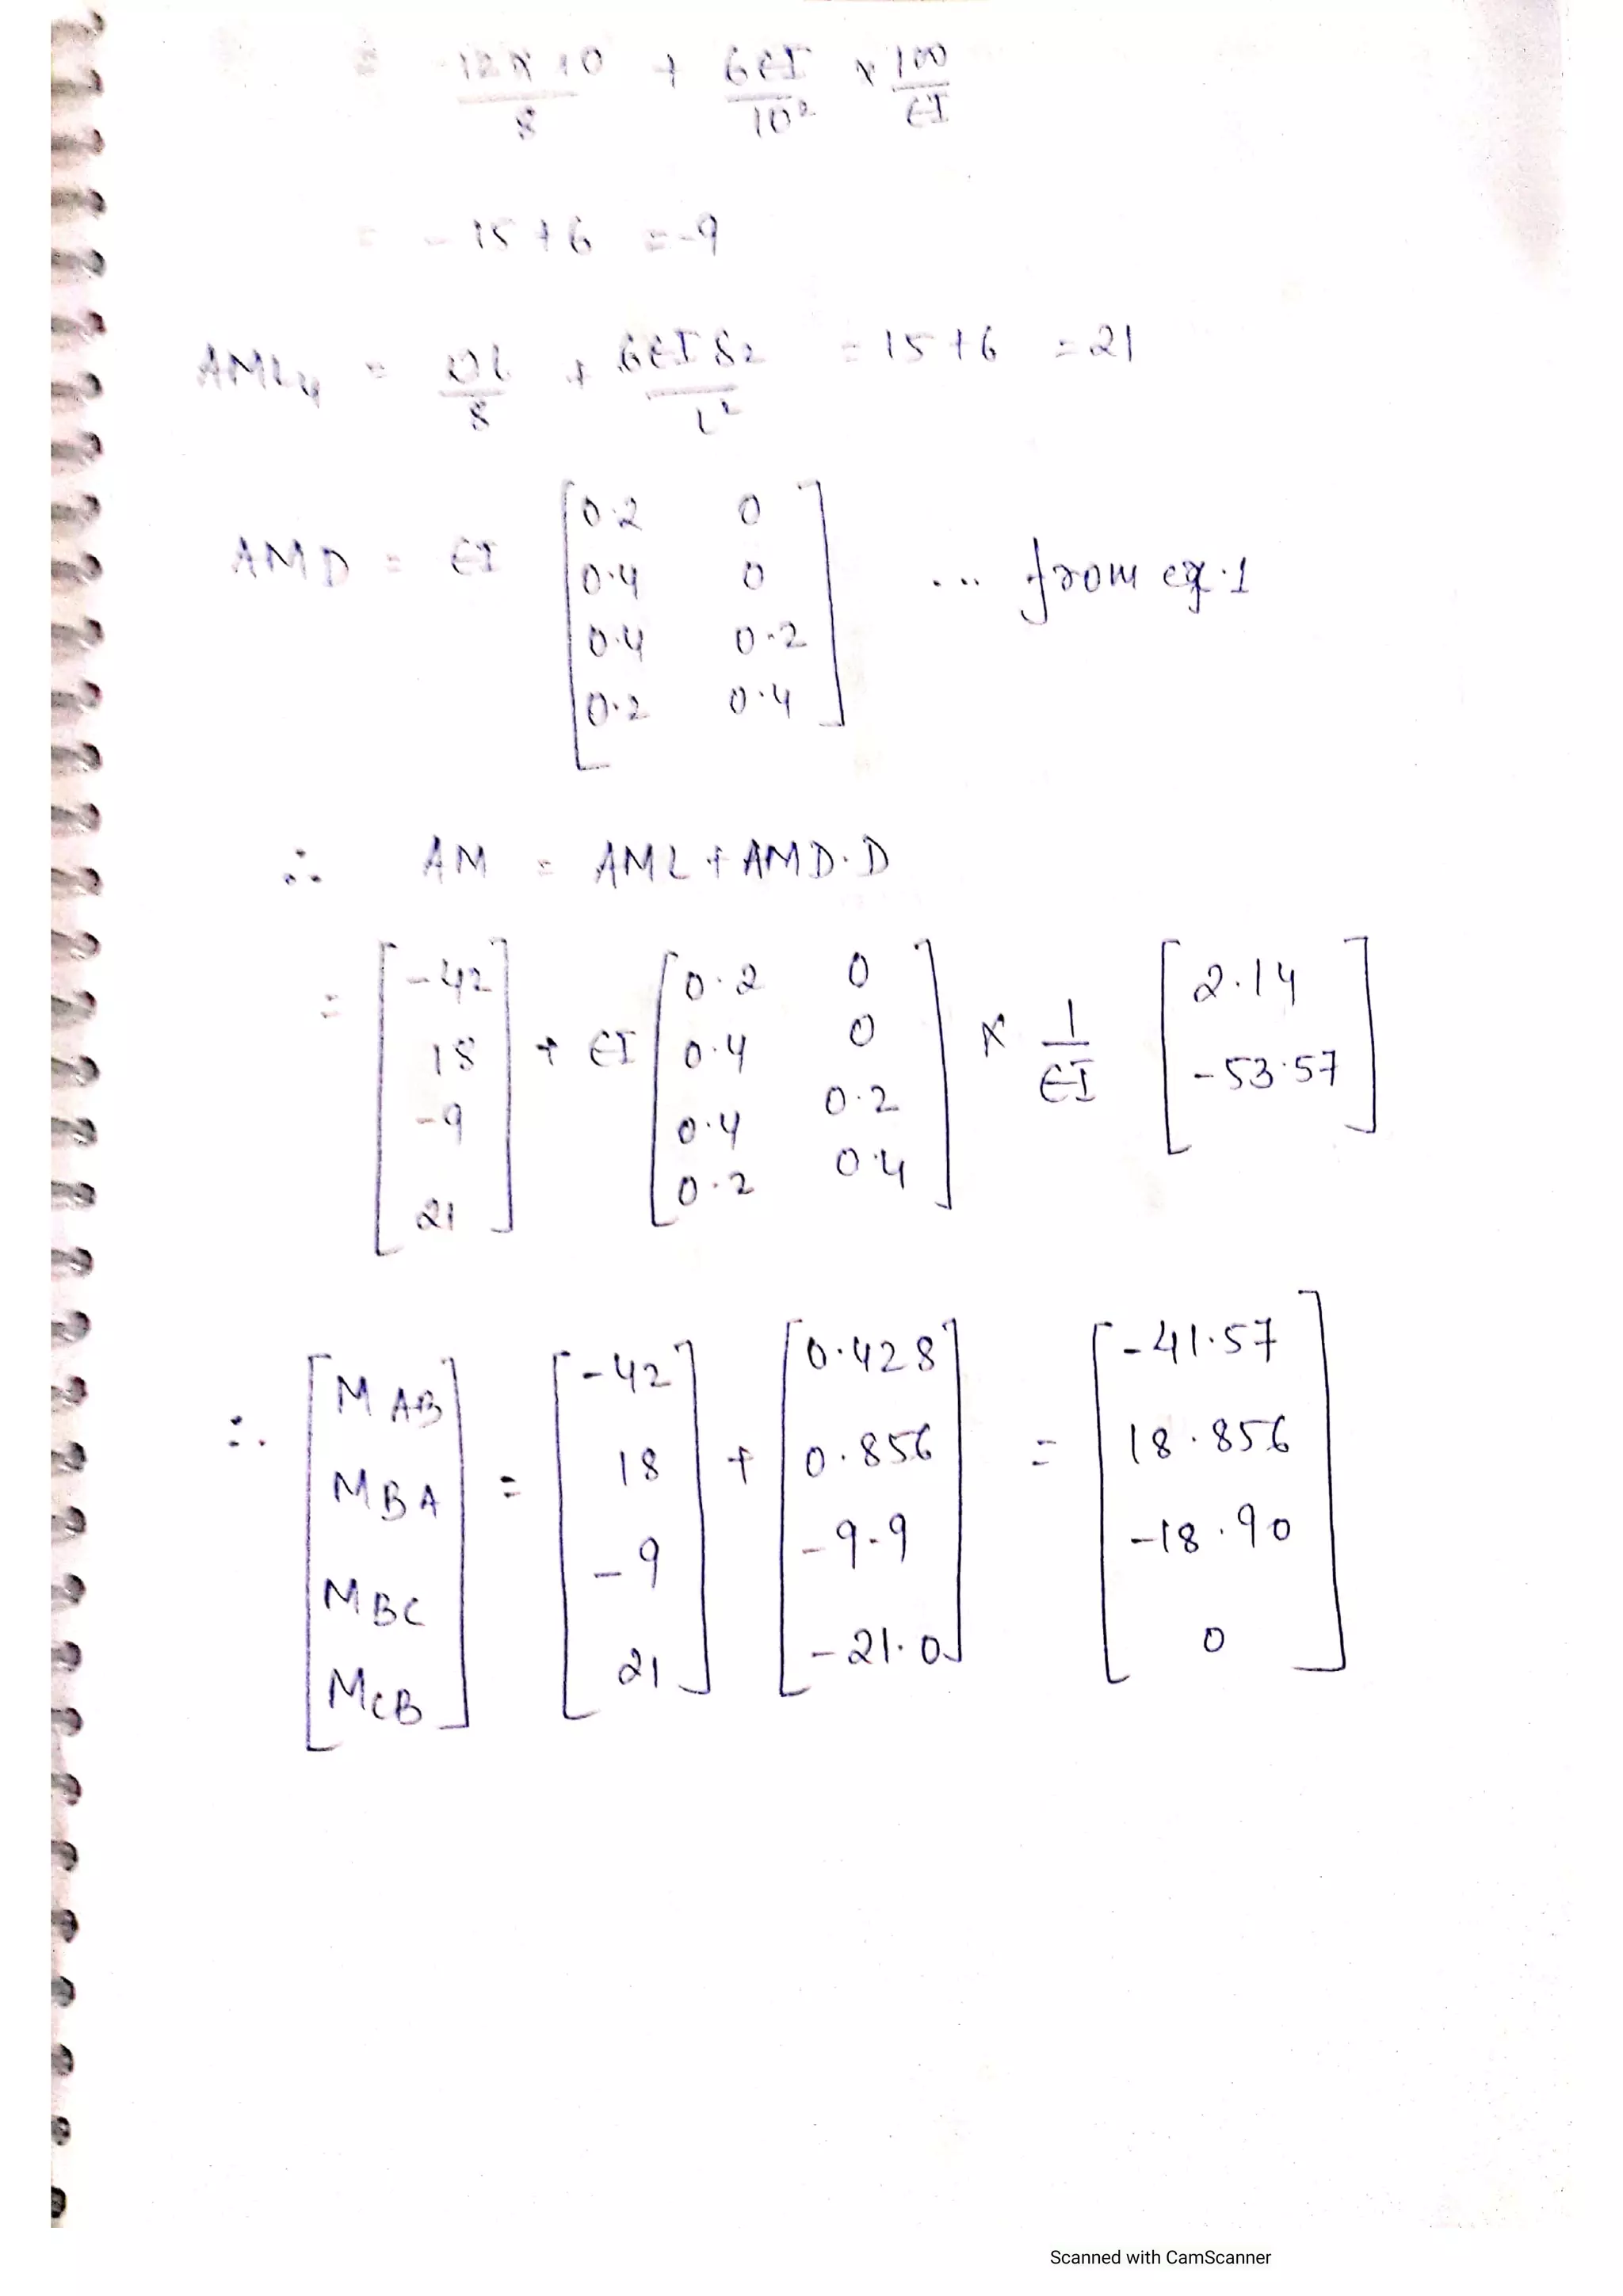 = -12 x 10 / 8 + 6EI / 10² x 100 / EI
= - 15 + 6 = -9
AML4 = ωL / 8 + 6EI δ2 / L² = 15 + 6 = 21
AMD = EI [0.2 0
0.4 0 ... from eq.1
0.4 0.2
0.2 0.4]
∴ AM = AML + AMD.D
= [-42 18 -9 21] + EI [0.2 0
0.4 0
0.4 0.2
0.2 0.4] x 1 / EI [2.14 -53.57]
∴ [MAB MBA MBC MCB] = [-42 18 -9 21] + [0.428 0.856 -9.9 -21.0] = [-41.57 18.856 -18.90 0]
Scanned with CamScanner